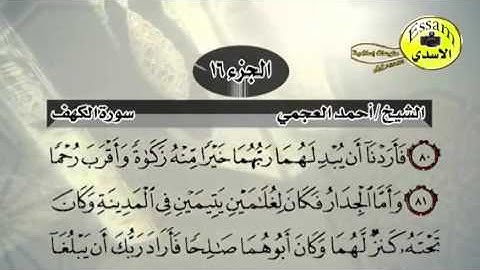 Essam
الأسدي
الجزء ١٦
الشيخ/أحمد العجمي سورة الكهف
٨٠ فَأَرَدْنَآ أَن يُبْدِلَهُمَا رَبُّهُمَا خَيْرًا مِّنْهُ زَكَوٰةً وَأَقْرَبَ رُحْمًا
٨١ وَأَمَّا ٱلْجِدَارُ فَكَانَ لِغُلَٰمَيْنِ يَتِيمَيْنِ فِى ٱلْمَدِينَةِ وَكَانَ
تَحْتَهُۥ كَنزٌ لَّهُمَا وَكَانَ أَبُوهُمَا صَٰلِحًا فَأَرَادَ رَبُّكَ أَن يَبْلُغَآ